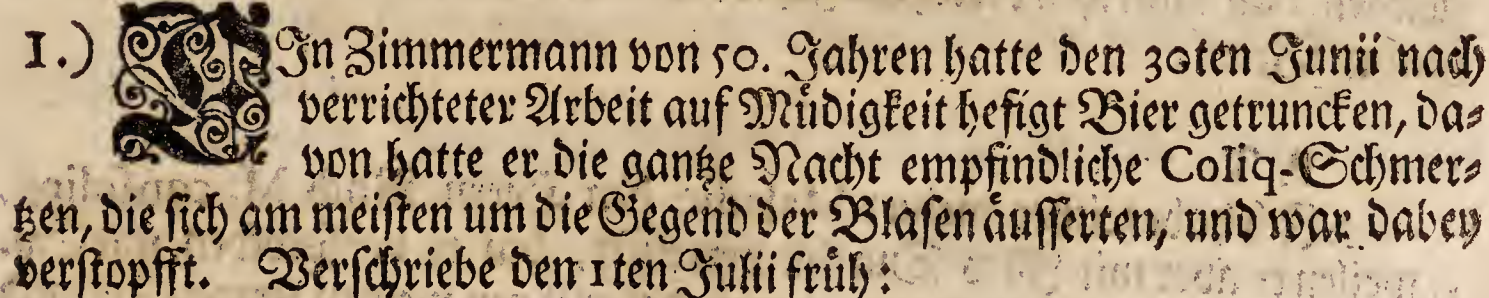 1.) EIn Zimmermann von 50. Jahren hatte den 30ten Junii nach
verrichteter Arbeit auf Müdigkeit hefigt Bier getruncken, da-
von hatte er die gantze Nacht empfindliche Coliq-Schmer-
tzen, die sich am meisten um die Gegend der Blasen äusserten, und war dabey
verstopfft. Verschriebe den 1ten Julii früh: